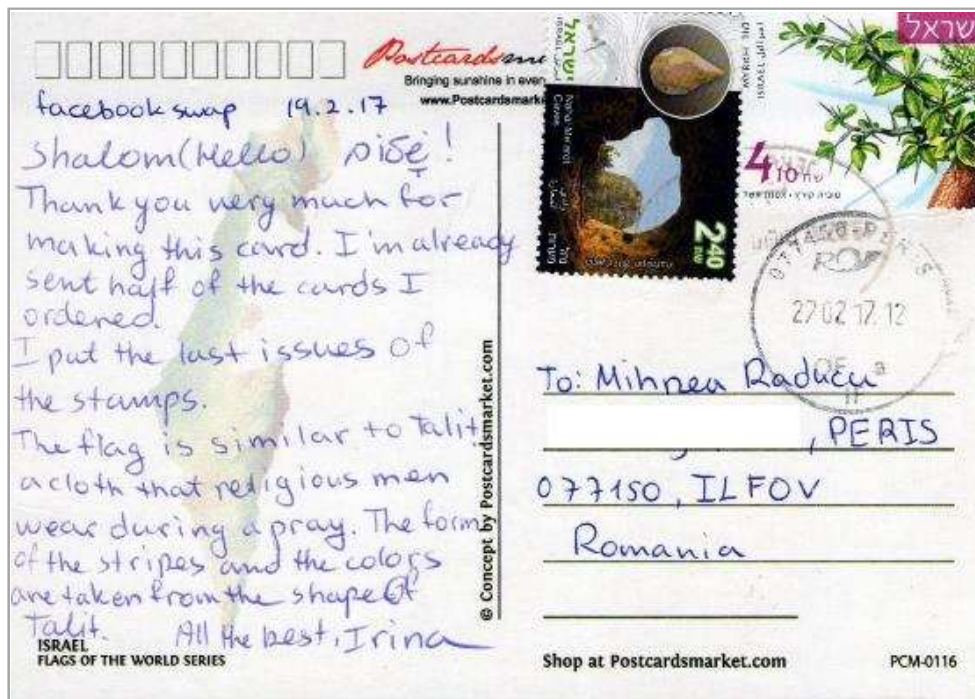 Postcardsm
Bringing sunshine in ever
www.Postcardsmarke
facebook swap 19.2.17
Shalom (Hello) שלום !
Thank you very much for
making this card. I'm already
sent half of the cards I
ordered.
I put the last issues of
the stamps.
The flag is similar to Talit,
a cloth that religious men
wear during a pray. The form
of the stripes and the colors
are taken from the shape of
Talit.
All the best, Irina
ISRAEL
FLAGS OF THE WORLD SERIES
© Concept by Postcardsmarket.com
ישראל
ISRAEL
Caves
2.40
ישראל
ISRAEL
4.10
27 02 17. 12
To: Mihnea Raducu
, PERIS
077150, ILFOV
Romania
Shop at Postcardsmarket.com
PCM-0116